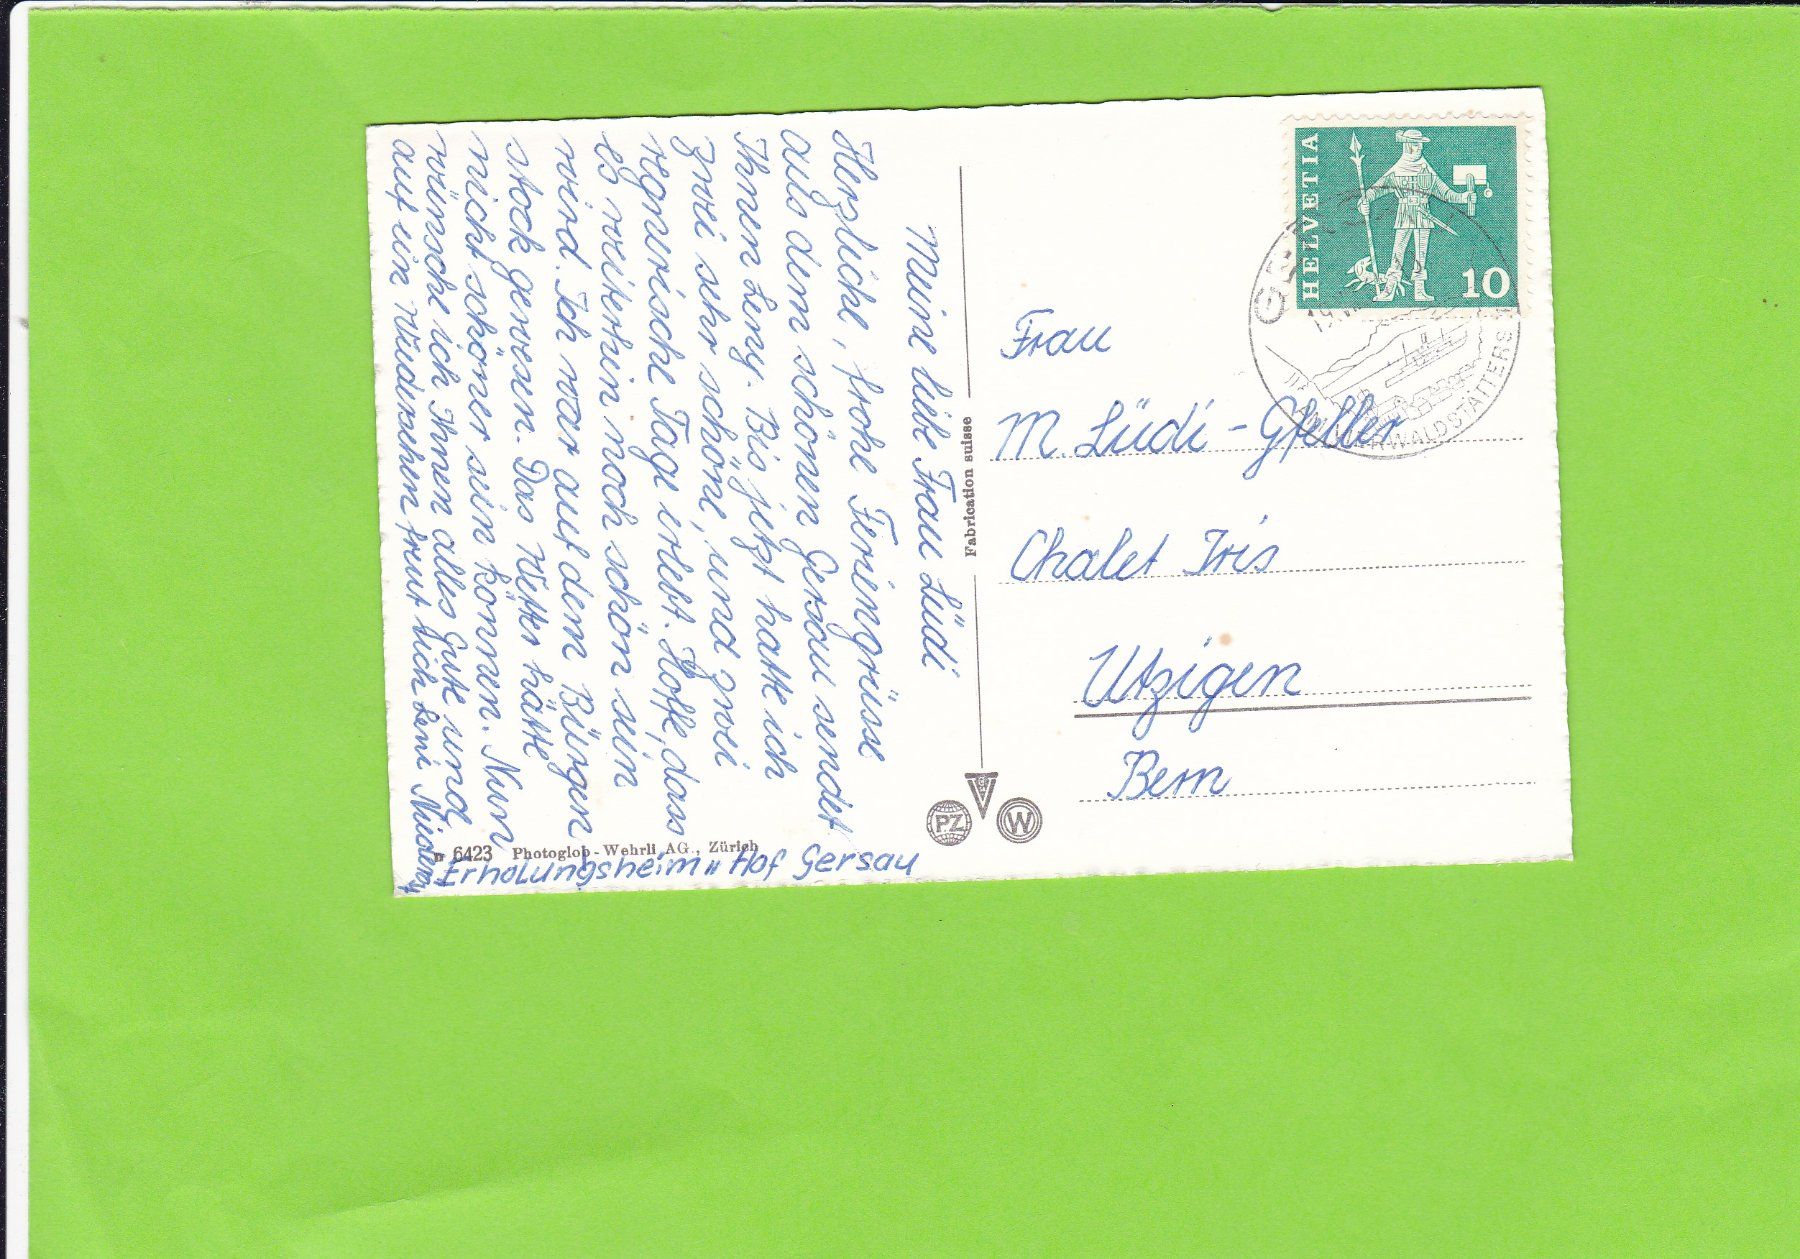 Meine liebe Frau Lüdi
Herzliche, frohe Feriengrüsse
aus dem schönen Gersau sendet
Ihnen Leny. Bis jetzt hatte ich
zwei sehr schöne, und zwei
regnerische Tage erlebt. Hoffe, dass
es weiterhin noch schön sein
wird. Ich war auf dem Bürgen
stock gewesen. Das Wetter hätte
nicht schöner sein können. Nun
wünsche ich Ihnen alles Gute und
auf ein Wiedersehen freut sich Leni
Erholungsheim „Hof Gersau
n 6423 Photoglob-Wehrli AG., Zürich
Fabrication suisse
PZ
W
HELVETIA
10
AM VIERWALDSTÄTTERS
Frau
M. Lüdi-Gfeller
Chalet Iris
Utzigen
Bern